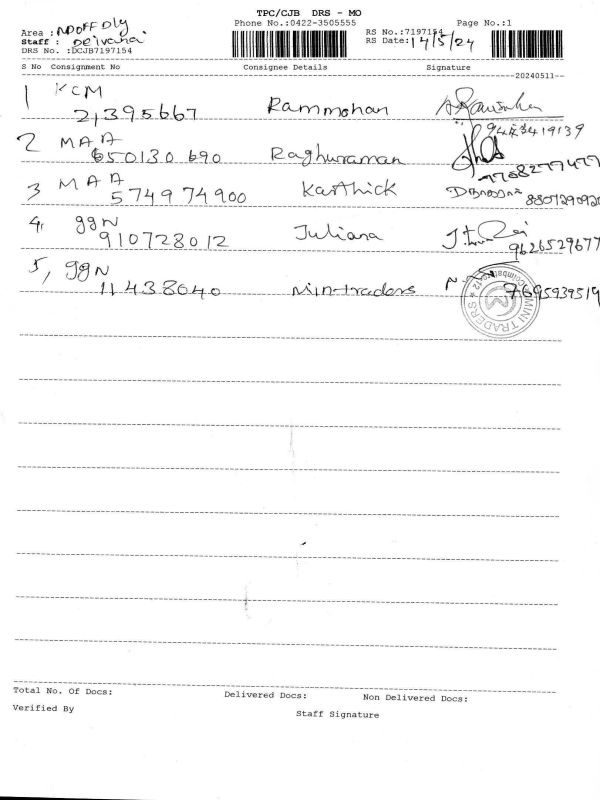 TPC/CJB DRS - MO
Phone No.:0422-3505555 Page No.:1
Area : NDOFF Dly RS No.:7197154
Staff : Deivanai RS Date: 14/5/24
DRS No. :DCJB7197154
S No Consignment No Consignee Details Signature
20240511
1 KCM
21395667 Rammohan
2 MAA
650130 690 Raghuraman
3 MAA
574974900 Karthick
4, ggN
910728012 Juliana
9626529677
5, ggN
11438640 Min-traders
7695939519
MINI TRADERS
Total No. Of Docs: Delivered Docs: Non Delivered Docs:
Verified By Staff Signature